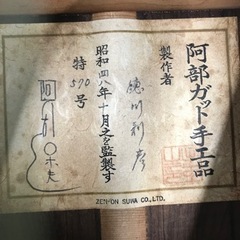 阿部ガット手工品
製作者
徳川利彦
昭和四八年十月之を監製す
特570号
ZEN-ON SUWA CO., LTD.